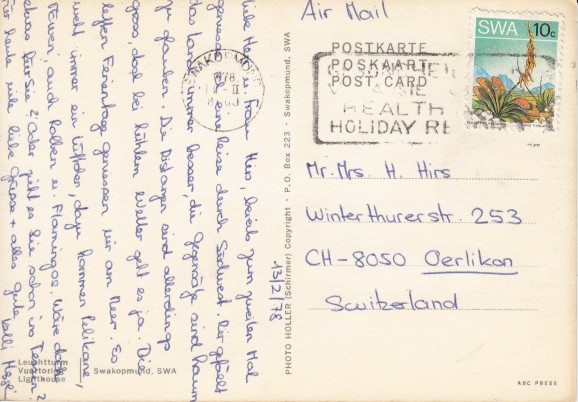 Air Mail
SWA 10c
POSTKARTE
POSKAART
POST CARD
SWAKOPMUND
HEALTH
HOLIDAY RE
Liebe Herr u. Frau Hirs, bereits zum zweiten Mal
geniesse ich eine Reise durch Südwest. Mir gefällt
das Land immer besser, die Gegensätze sind kaum
zu glauben. Die Distanzen sind allerdings
gross, doch bei kühlem Wetter geht es ja. Die
letzten Ferientage geniessen wir am Meer. So
weht immer ein Lüftchen, dazu kommen Pelikane,
Möwen, auch Robben u. Flamingos. Wäre das
etwas für Sie? Oder geht es Sie schon ins Tessin?
Für heute viele liebe Grüsse + alles gute
13/2/78
Mr. Mrs. H. Hirs
Winterthurerstr. 253
CH-8050 Oerlikon
Switzerland
PHOTO HOLLER (Schirmer) Copyright · P.O. Box 223 · Swakopmund, SWA
Leuchtturm
Vuurtoring
Lighthouse
Swakopmund, SWA
ABC PRESS